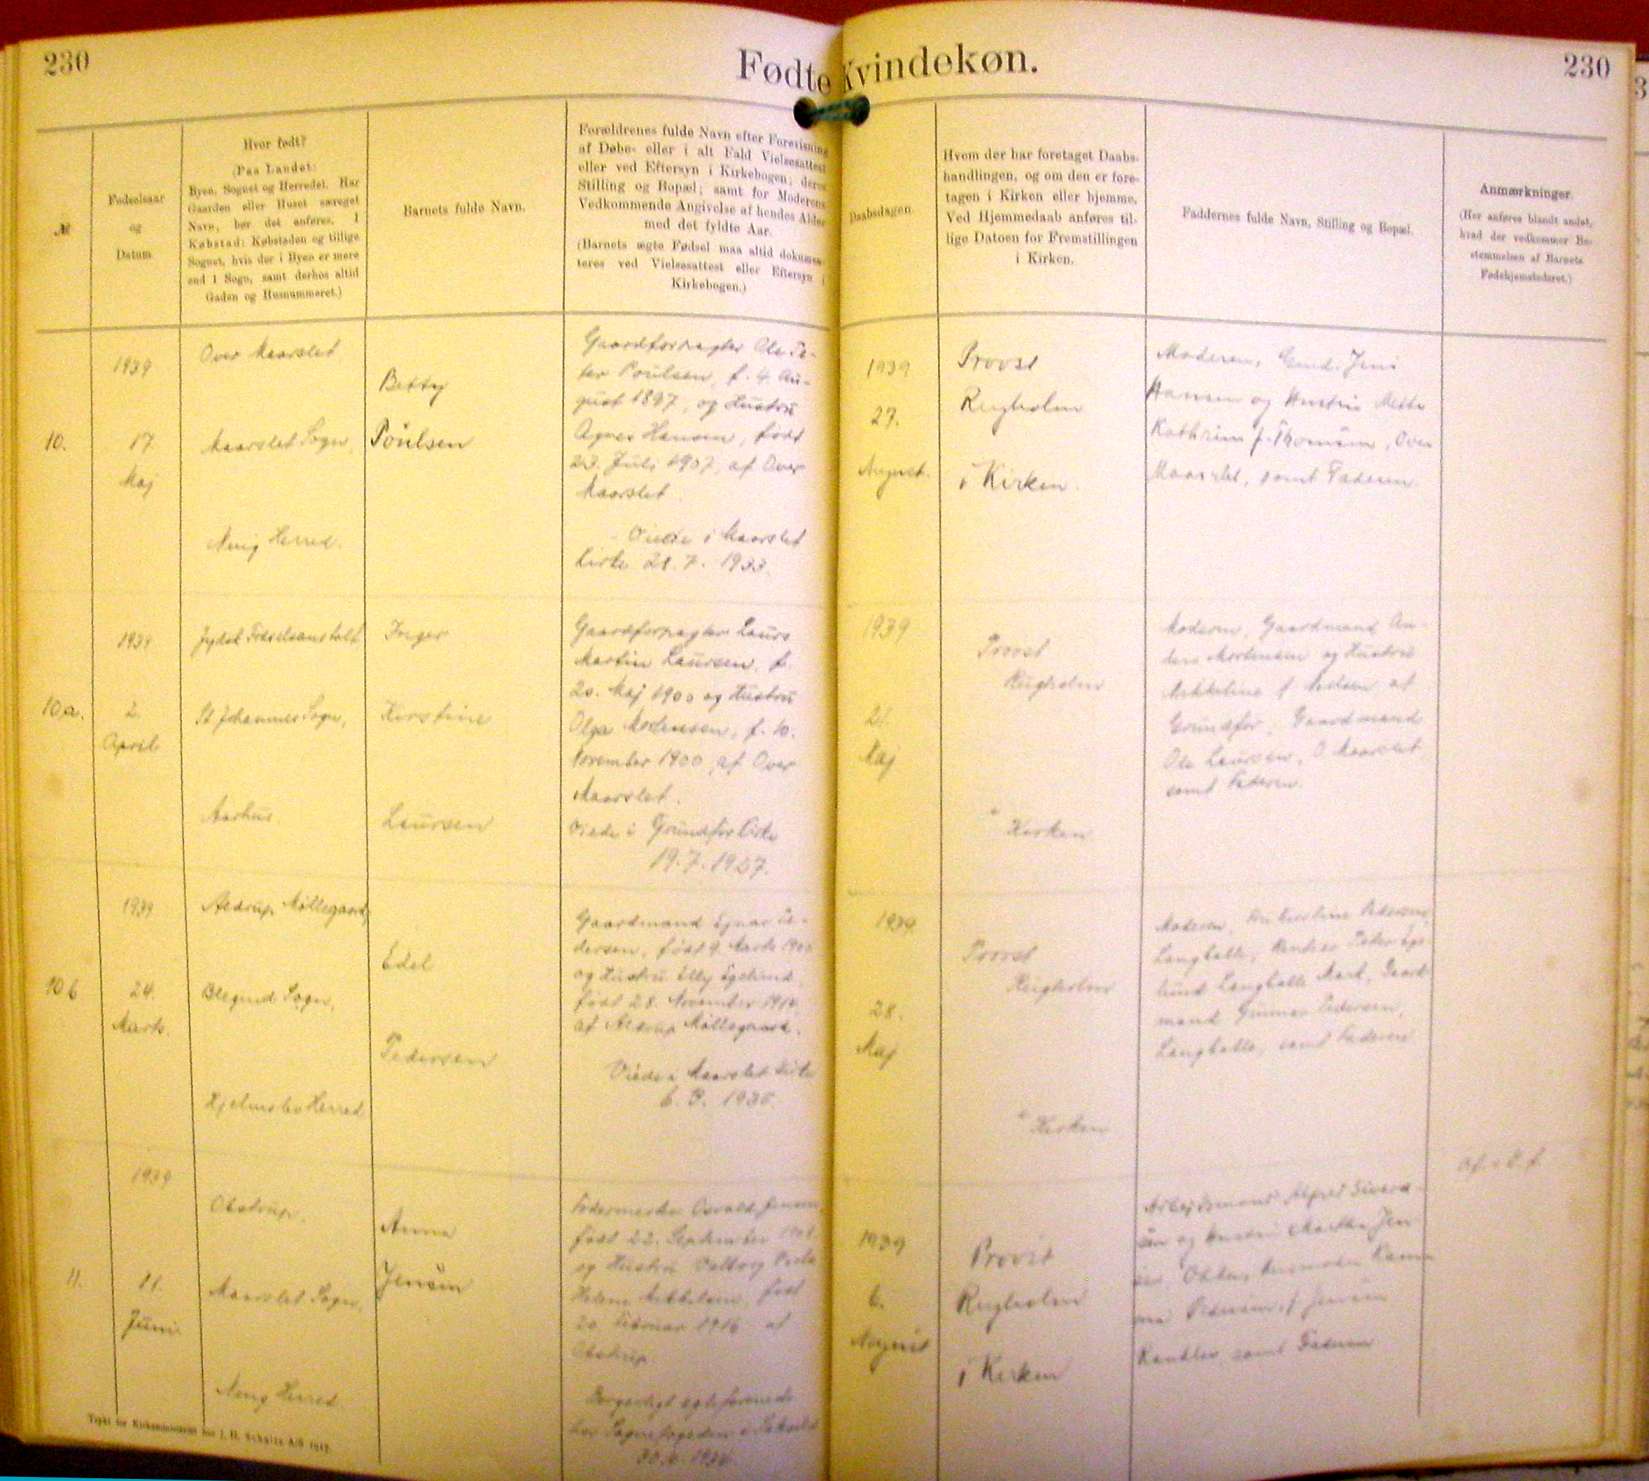 230
Fødte Kvindekøn.
230
№
Fødselsaar
og
Datum
Hvor født?
(Paa Landet:
Byen, Sognet og Herredet. Har
Gaarden eller Huset særeget
Navn, bør det anføres. I
Købstad: Købstaden og tillige
Sognet, hvis der i Byen er mere
end 1 Sogn, samt derhos altid
Gaden og Husnummeret.)
Barnets fulde Navn.
Forældrenes fulde Navn efter Forevisning
af Døbe- eller i alt Fald Vielsesattest
eller ved Eftersyn i Kirkebogen; deres
Stilling og Bopæl; samt for Moderens
Vedkommende Angivelse af hendes Alder
med det fyldte Aar.
(Barnets ægte Fødsel maa altid dokumen-
teres ved Vielsesattest eller Eftersyn i
Kirkebogen.)
Daabsdagen
Hvem der har foretaget Daabs-
handlingen, og om den er fore-
tagen i Kirken eller hjemme.
Ved Hjemmedaab anføres til-
lige Datoen for Fremstillingen
i Kirken.
Faddernes fulde Navn, Stilling og Bopæl.
Anmærkninger.
(Her anføres blandt andet,
hvad der vedkommer Be-
stemmelsen af Barnets
Fødehjemstedsret.)
10.
1939
17.
Maj
Over Maarslet
Maarslet Sogn,
Ning Herred.
Betty
Poulsen
Gaardforpagter Ole Pe-
ter Poulsen, f. 4. Au-
gust 1897, og Hustru
Agnes Hansen, født
23. Juli 1907, af Over
Maarslet.
Viede i Maarslet
Kirke 21. 7. 1933.
1939
27.
August.
Provst
Rugholm
i Kirken.
Moderen, Gmd. Jens
Hansen og Hustru Mette
Kathrine f. Thomsen, Over
Maarslet, samt Faderen.
10a.
1939
2.
April
Jydsk Fødselsanstalt
St Johannes Sogn,
Aarhus
Inger
Kirstine
Laursen
Gaardforpagter Laurs
Martin Laursen, f.
20. Maj 1900 og Hustru
Olga Mortensen, f. 10.
November 1900, af Over
Maarslet.
Viede i Grundfør Kirke
19. 7. 1927.
1939
21.
Maj
Provst
Rugholm
i Kirken
Moderen, Gaardmand An-
ders Mortensen og Hustru
f. Nielsen af
Grundfør, Gaardmand
Ole Laursen, O. Maarslet
samt Faderen.
10b
1939
24.
Marts.
Aedrup Møllegaard,
Blegind Sogn,
Hjelmslev Herred
Edel
Pedersen
Gaardmand Ejnar Pe-
dersen, født 9. Marts
og Hustru Elly Egelund,
født 28. November
af Aedrup Møllegaard.
Viede i Maarslet Kirke
1939.
28.
Maj
Provst
Rugholm
i Kirken
Moderen, Pedersen,
Langballe, Peder Ege-
lund Langballe Mark, Gaard-
mand Gunnar Pedersen,
Langballe, samt Faderen
11.
1939
11.
Juni
Obstrup,
Maarslet Sogn,
Ning Herred
Anna
Jensen
Fodermester Osvald Jensen
født 22. September
og Hustru Valborg
Helene Mikkelsen, født
20. Februar 1916 af
Obstrup
Borgerligt
hos Sognefogeden i
1939
6.
August
Provst
Rugholm
i Kirken
Arbejdsmand Alfred
og Hustru Martha Jen-
sen,
f. Jensen
samt Faderen
Trykt for Kirkeministeriet hos J. H. Schultz A/S 1917.